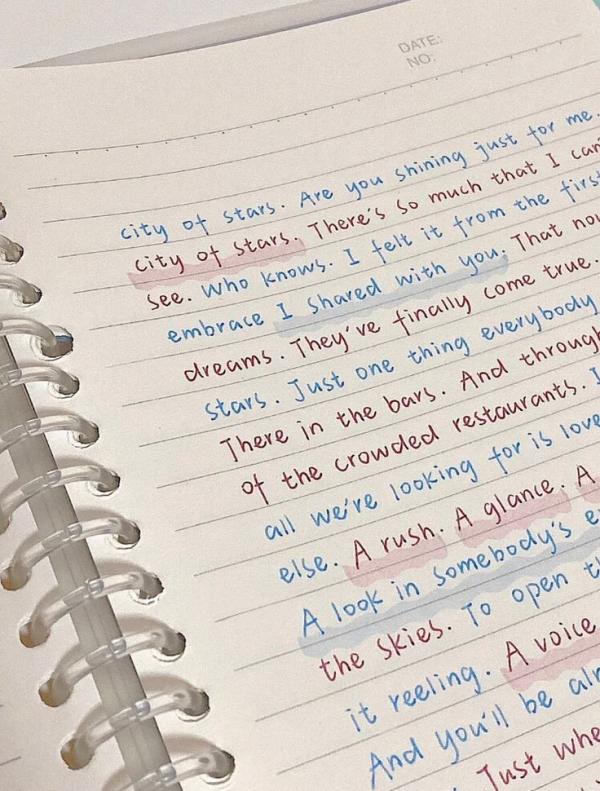 DATE:
NO:
city of stars. Are you shining just for me.
city of stars. There's so much that I can
see. Who knows. I felt it from the first
embrace I shared with you. That now
dreams. They've finally come true.
stars. Just one thing everybody
There in the bars. And through
of the crowded restaurants.
all we're looking for is love
else. A rush. A glance. A
A look in somebody's
the skies. To open
it reeling. A voice
And you'll be
Just